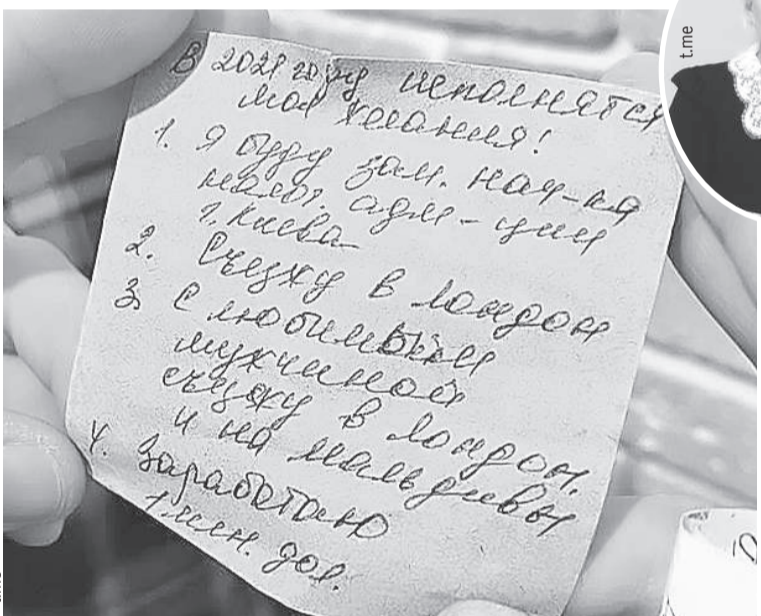 t.me
В 2021 году исполнятся
мои желания!
1. Я буду зам. нач-ка
налог. адм-ции
г. Киева
2. Съезжу в Лондон
3. С любимым
мужчиной
съезжу в Лондон.
и на Мальдивы
4. Заработаю
1 млн. дол.